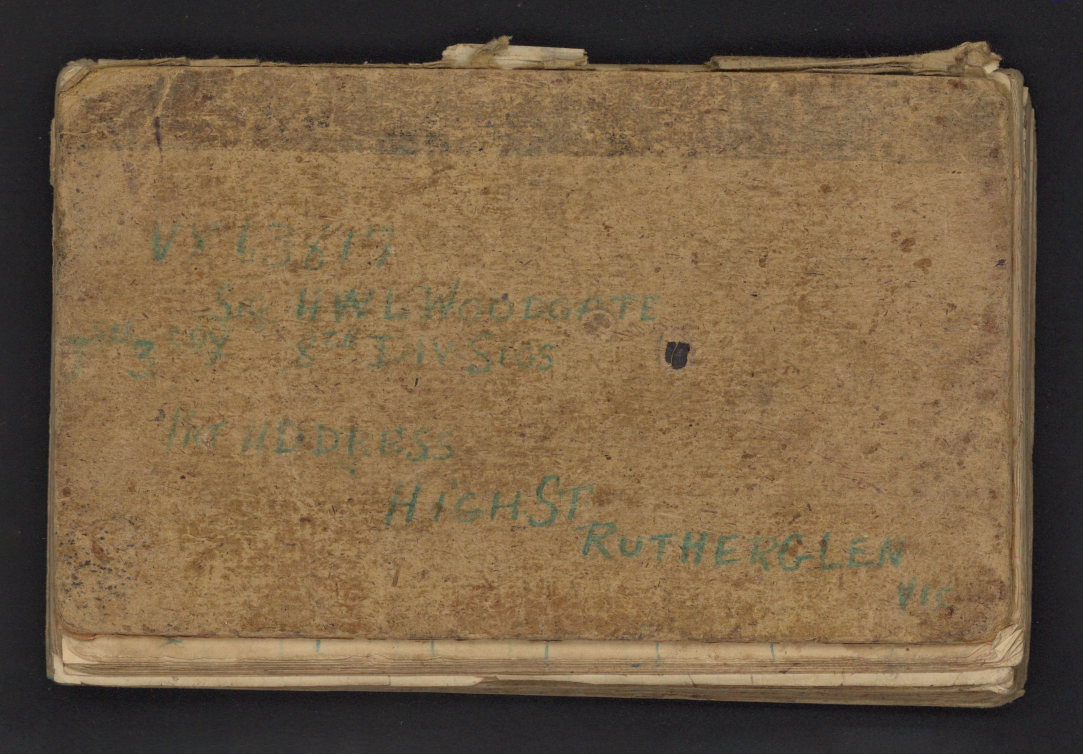 VX 63617
Sig H W L WOODGATE
8TH DIV SIGS
PVT ADDRESS
HIGH ST
RUTHERGLEN
VIC